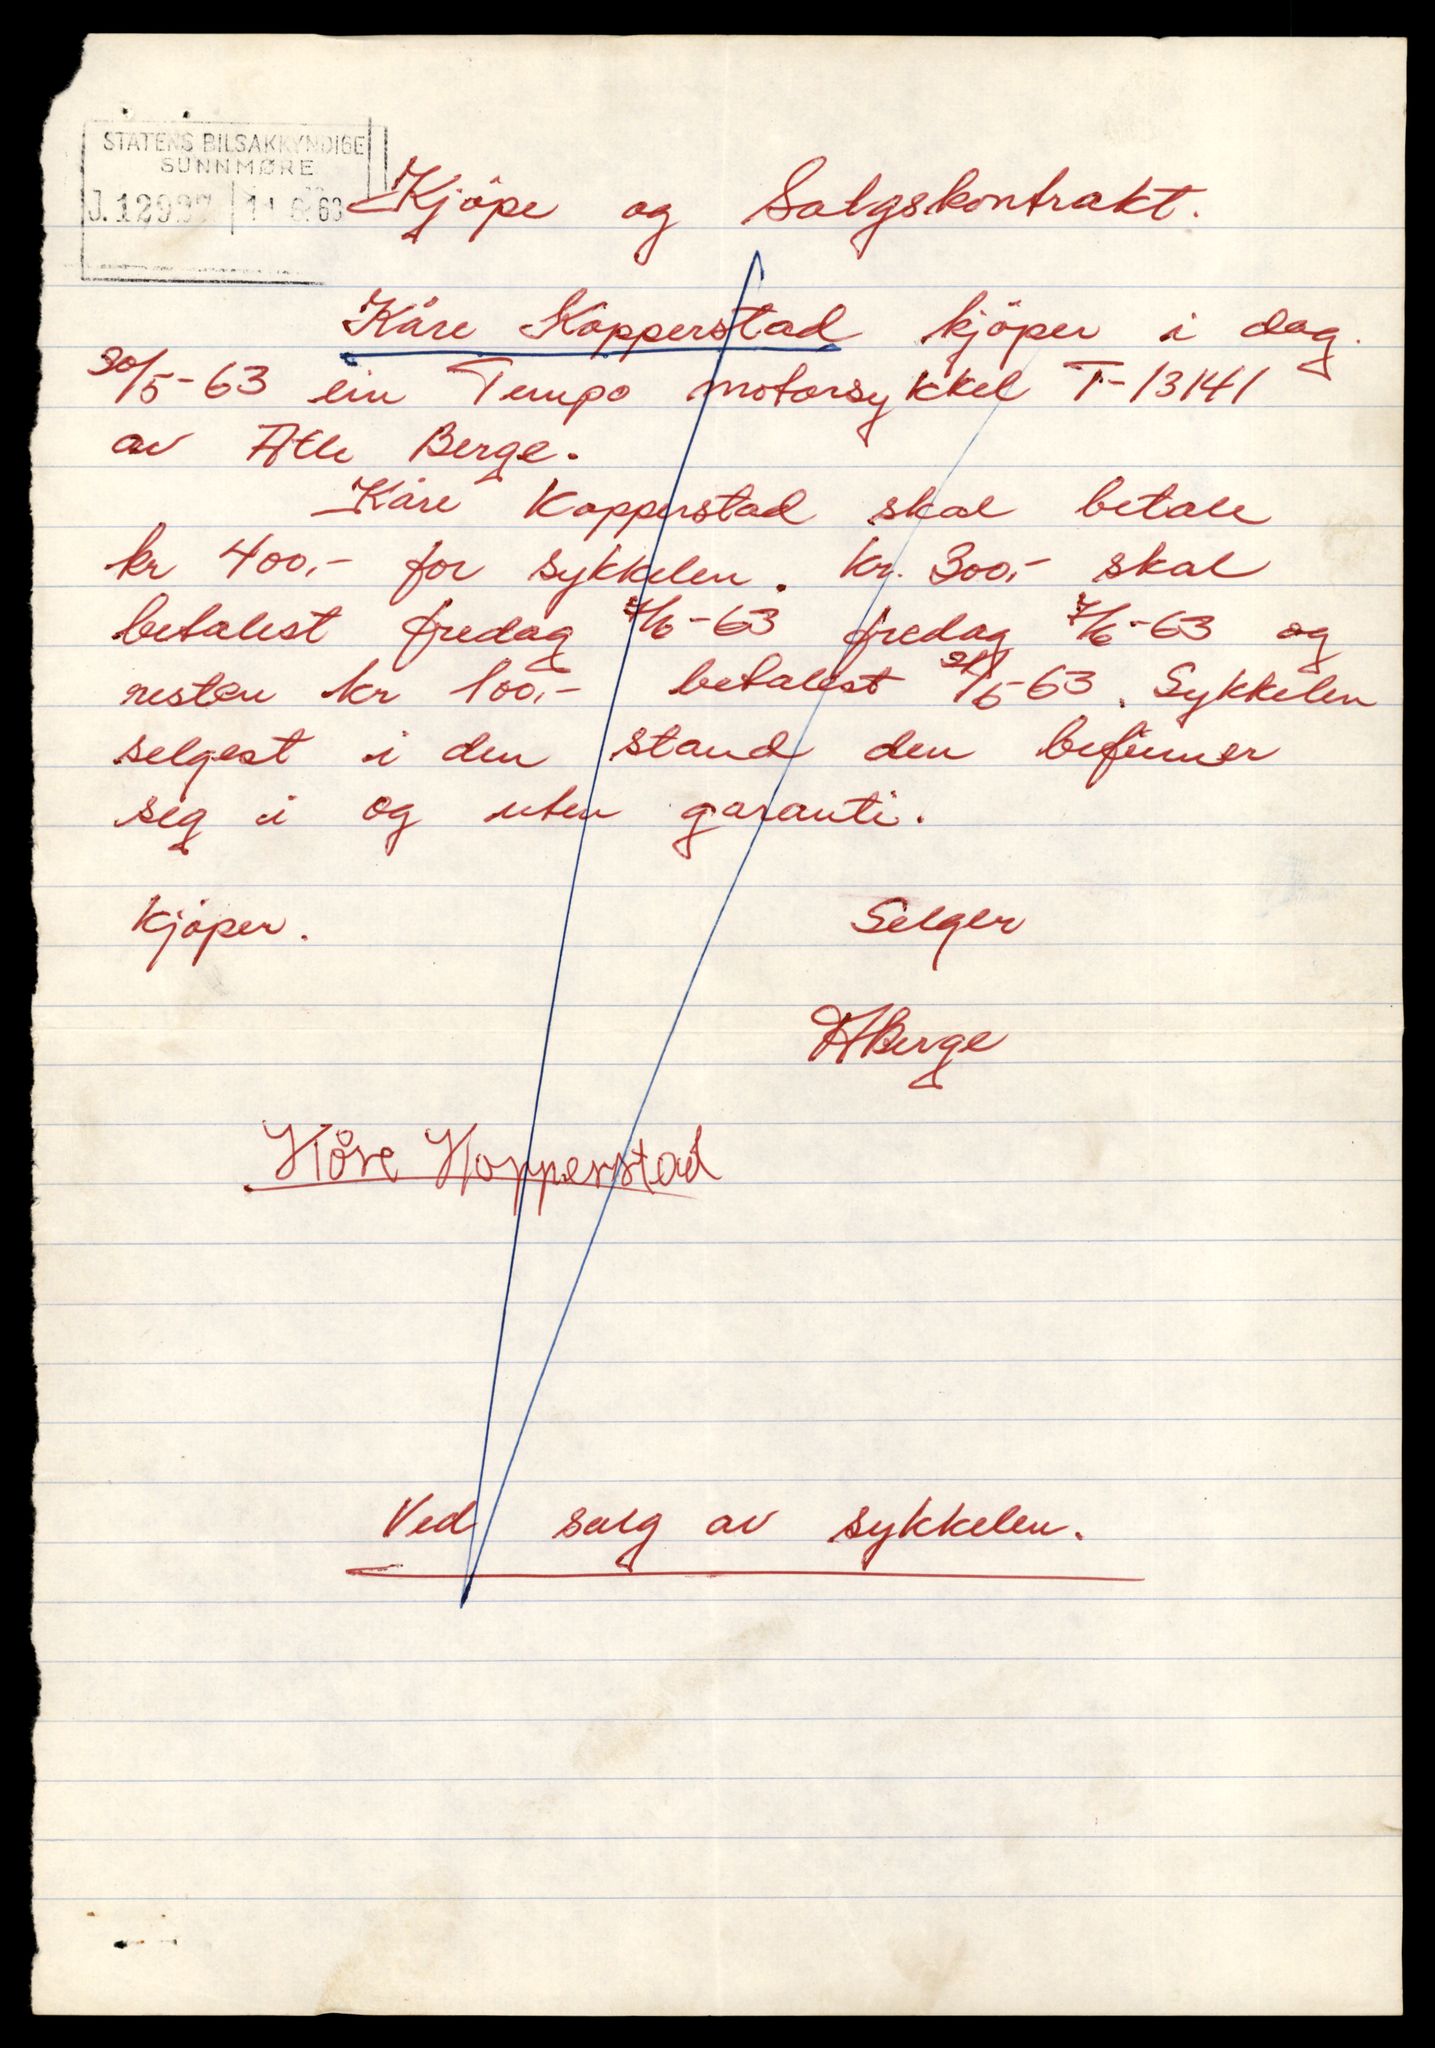 STATENS BILSAKKYNDIGE
SUNNMØRE
Kjöpe og Salgskontrakt.
Kåre Kopperstad kjöper i dag.
30/5-63 ein Tempo motorsykkel T-13141
av Atle Berge.
Kåre Kopperstad skal betale
kr 400,- for sykkelen. kr. 300,- skal
betalest fredag 7/6-63 fredag 7/6-63 og
resten kr 100,- betalest 63. Sykkelen
selgest i den stand den befinner
seg i og uten garanti.
Kjöper. Selger
ABerge
Kåre Kopperstad
Ved salg av sykkelen.